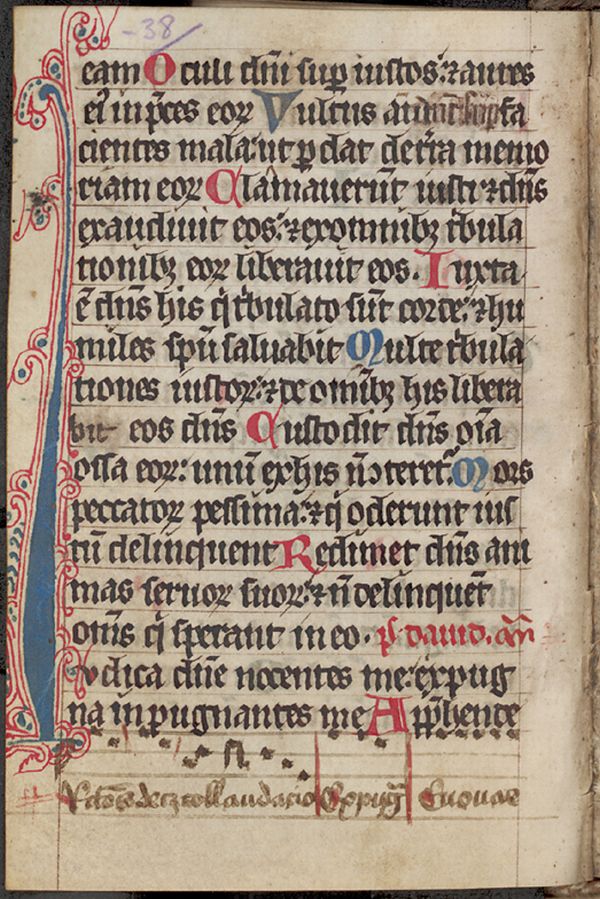 38
eam Oculi dñi sup iustos: ⁊ aures
ei᷒ in p̃ces eoꝝ Vultus aũt dñi sup fa
cientes mala: ut pdat de t̃ra memo
riam eoꝝ Clamauerũt iusti ⁊ dñs
exaudiuit eos: ⁊ ex omnibꝫ t̃bula
tionibꝫ eoꝝ liberauit eos. Iuxta
ẽ dñs his q̃ t̃bulato sũt corde: ⁊ hu
miles spũ saluabit Multe t̃bula
tiones iustoꝝ: ⁊ de omĩbꝫ his libera
bit eos dñs Custodit dñs oĩa
ossa eoꝝ: unũ ex his ñ ꝯteret᷑. Mors
peccatoꝝ pessima: ⁊ q̃ oderunt ius
tũ delinquent Redimet dñs ani
mas seruoꝝ suoꝝ: ⁊ ñ delinquẽt
om̃s q̃ sperant in eo. p̃s dauid.
Iudica dñe nocentes me: expug
na inpugnantes me Appħende
collaudacio Expug̃ Euouae